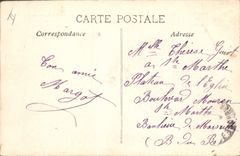 CARTE POSTALE
Correspondance
Adresse
Ton amie
Margot
Mlle Thérèse
à Ste Marthe
Plateau de l'Eglise
Boulevard
Ste Marthe
Banlieue de Marseille
(B du R